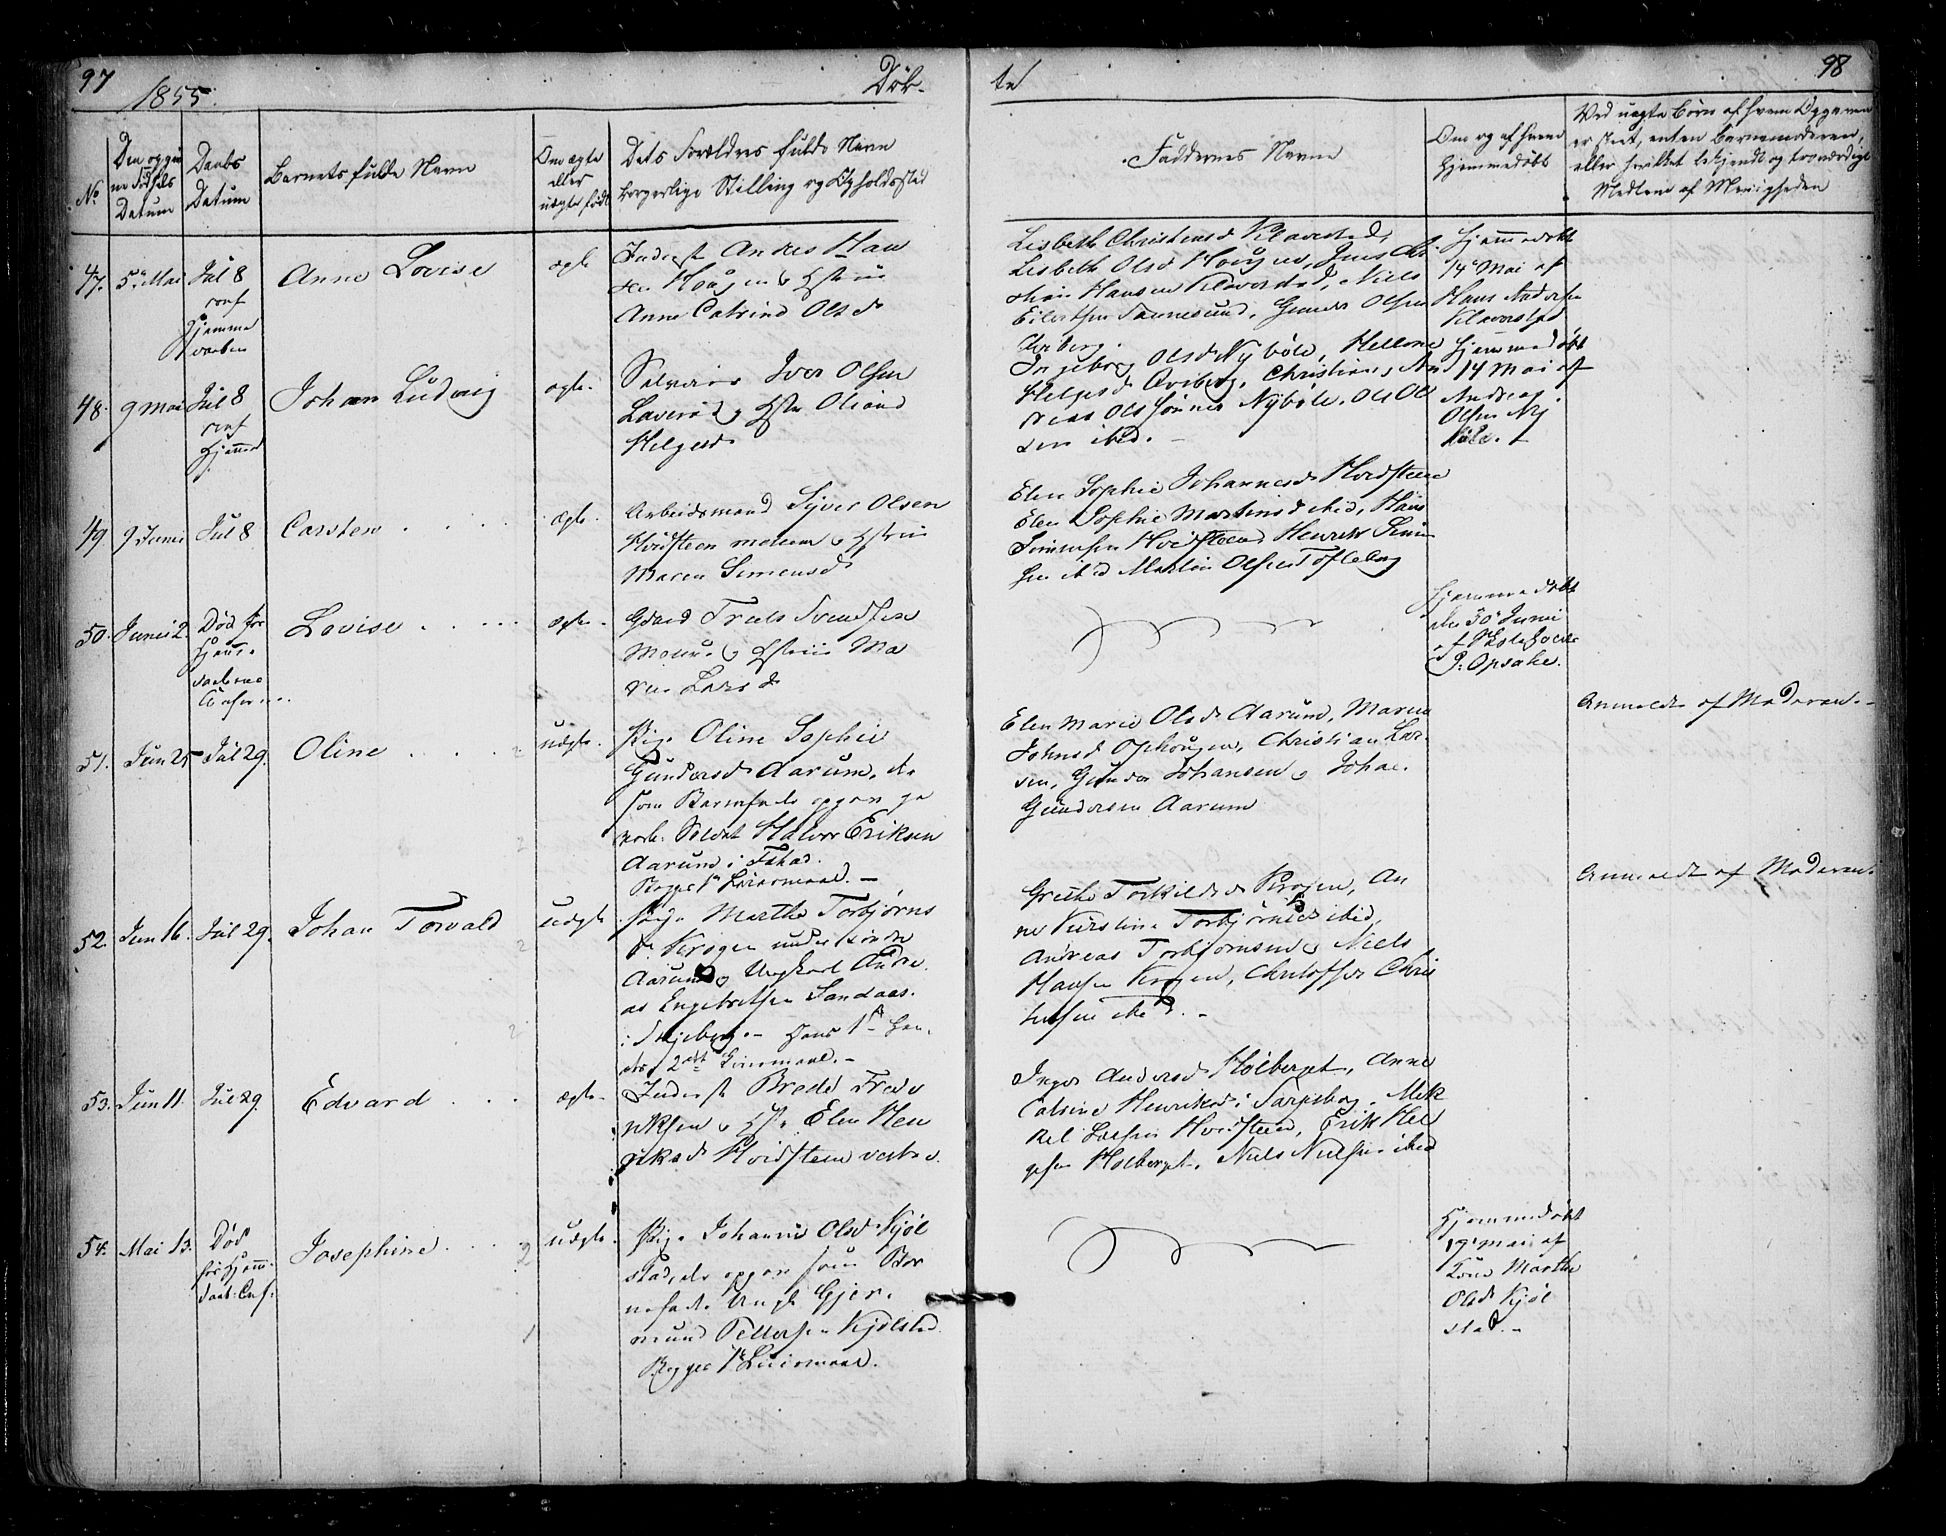 97
1855.
Døb-
te
98
No.
Den opgiv
ne Fødsels
Datum
Daabs
Datum
Barnets fulde Navn
Om ægte
eller
uægte født
Dets Forældres fulde Navn
borgerlige Stilling og Opholdssted
Faddernes Navne
Om og af hvem
hjemmedøbt
Ved uægte Børn af hvem Opgaven
er skeet, enten Barnemoderen,
eller hvilket bekjendt og troværdigt
Medlem af Menigheden
47. 5te Mai Jul 8
conf
Hjemme
daaben
Anne Lovise
ægte
Inderst Andres Han
sen Hougen & Hstru
Anne Catrine Olsd
Lisbeth Christensd Klavestad,
Lisbeth Olsd Hougen, Jens Chri
stian Hansen Klavestad, Niels
Eilertsen Sannesund, Gunder Olsen
Aviberg.
Hjemmedøbt
14 Mai af
Hans Andersen
Klavestad
48. 9 Mai Jul 8
conf
Hjemmed
Johan Ludvig
ægte.
Selveier Iver Olsen
Laverød & Hstr Oliane
Helgesd
Ingeborg Olsd Nybøle, Hellene
Helgesd Aviberg, Christian & An
dreas Olssønner Nybøle, Ole Ol
sen ibid.
Hjemmedøbt
14 Mai af
Andreas
Olsen Ny
bøle.
49. 9 Juni Jul 8
Carsten
ægte.
Arbeidsmand Syver Olsen
Hvidsteen & Hstru
Maren Simensd
Elen Sophie Johannesd Hvidsteen
Elen Sophie Martinsd ibid, Hans
Simensen Hvidsteen Henrik Simen
sen ibid Martin Olsen Tofteberg
50. Juni 2. Død før
Hjemme
daabens
Lovise
ægte.
Gaard Troels Svendsen
& Hstrue Ma
ren Larsd
Hjemmedøbt
den 30 Juni
af
P. Opsahl.
51. Jun 25 Jul 29.
Oline
uægte.
Pige Oline Sophie
Gundersd Aarum, der
som Barnefader opgav
Soldat Halvor Eriksen
Aarum i
Begges 1te Leiermaal.
Elen Marie Olsd Aarum, Maren
Johnsd Ophougen, Christian Lar-
sen, Gunder Johansen & Johan
Gundersen Aarum
Anmeldt af Moderen.
52. Jun 16. Jul 29.
Johan Torvald
uægte
Pige Marthe Torbjørns
d. Krogen under søndre
Aarum & Ungkarl Andre
as Engebretsen Sandaas
i Skjeberg. Hans 1te Hen
des 2det Leiermaal.
Grethe Torkildsd Krogen, An
ne Kirstine Torbjørnsd ibid,
Andreas Torbjørnsen & Niels
Hansen Krogen, Christoffer Chris
tensen ibid.
Anmeldt af Moderen.
53. Jun 11. Jul 29.
Edvard
ægte.
Inderst Brede Frede
riksen & Hst. Elen Hen
riksd Hvidsteen vestre
Inger Andersd Holberget, Anne
Catrine Henriksd i Sarpsborg, Mik
kel Larsen Hvidsteen, Erik Hel
gesen Holberget, Niels Nielsen ibid
54. Mai 13. Død
før Hjem.
daab. Conf.
Josephine
uægte.
Pige Johanne Olsd Kjøl
stad, der opgav som Bar
nefader Ungk. Gjer
mund Pettersen Kjølstad.
Begges 1te Leiermaal.
Hjemmedøbt
19 Mai af
Kone Marthe
Olsd Kjøl
stad.